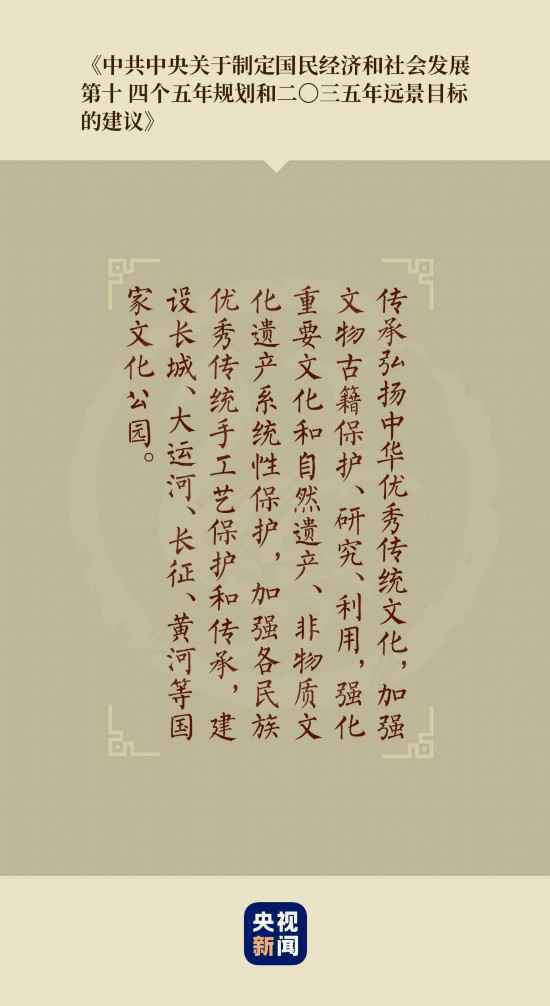 《中共中央关于制定国民经济和社会发展
第十 四个五年规划和二〇三五年远景目标
的建议》
传承弘扬中华优秀传统文化，加强
文物古籍保护、研究、利用，强化
重要文化和自然遗产、非物质文
化遗产系统性保护，加强各民族
优秀传统手工艺保护和传承，建
设长城、大运河、长征、黄河等国
家文化公园。
央视
新闻